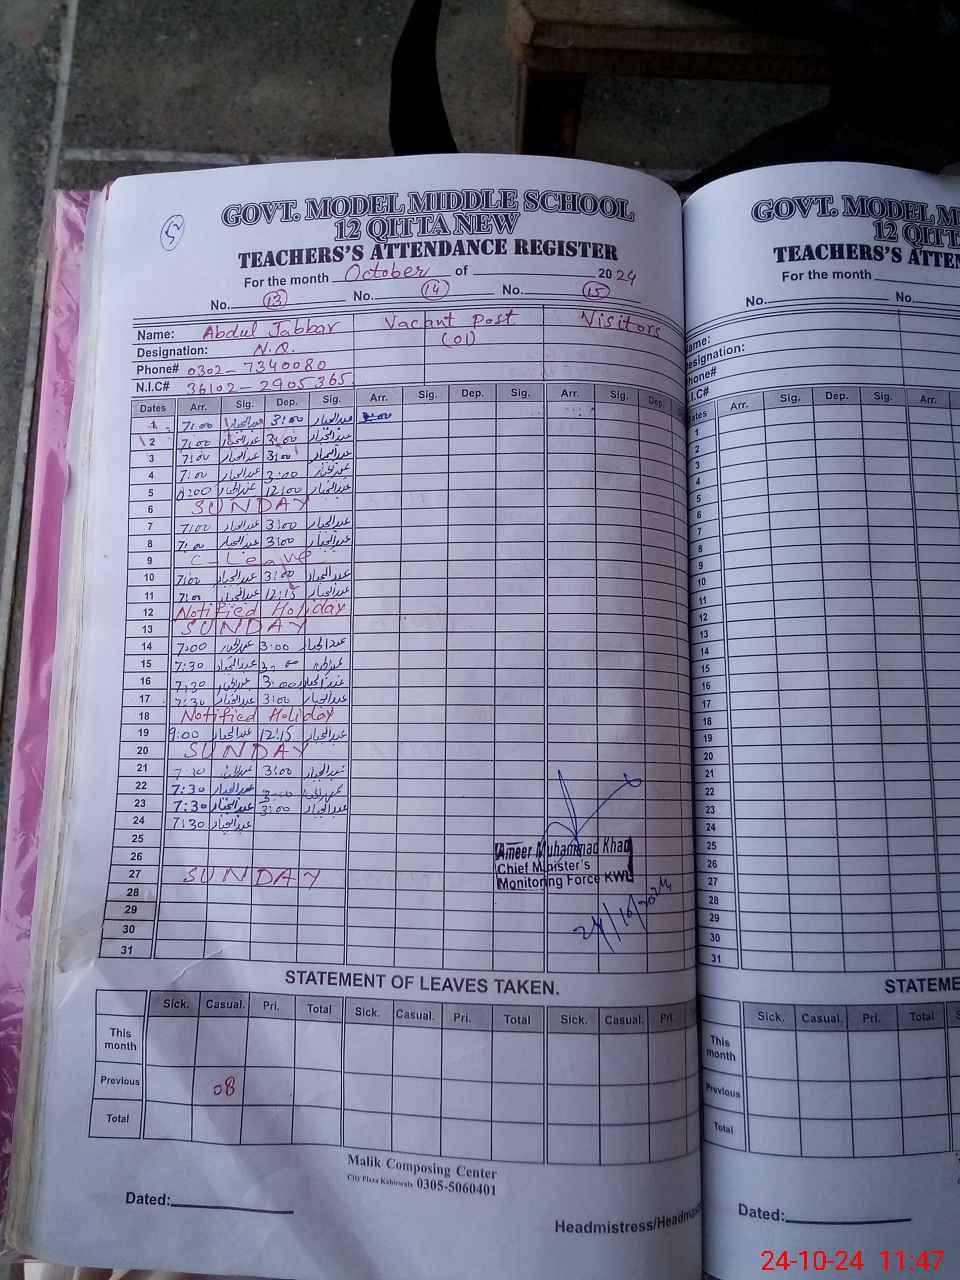 5
GOVT. MODEL MIDDLE SCHOOL
12 QITTA NEW
TEACHERS'S ATTENDANCE REGISTER
For the month October of 2024
No. 13 No. 14 No. 15
Name: Abdul Jabbar Vacant Post Visitors
Designation: N.Q. (01)
Phone# 0302-7340080
N.I.C# 36102-2905365
Dates Arr. Sig. Dep. Sig. Arr. Sig. Dep. Sig. Arr. Sig. Dep. Sig.
1 7:00 عبدالجبار 3:00 عبدالجبار
2 7:00 عبدالجبار 3:00 عبدالجبار
3 7:00 عبدالجبار 3:00 عبدالجبار
4 7:00 عبدالجبار 3:00 عبدالجبار
5 عبدالجبار 12:00 عبدالجبار
6 SUNDAY
7 7:00 عبدالجبار 3:00 عبدالجبار
8 7:00 عبدالجبار 3:00 عبدالجبار
9 C-Leave
10 7:00 عبدالجبار 3:00 عبدالجبار
11 7:00 عبدالجبار 12:15 عبدالجبار
12 Notified Holiday
13 SUNDAY
14 7:00 عبدالجبار 3:00 عبدالجبار
15 7:30 عبدالجبار 3:00 عبدالجبار
16 7:30 عبدالجبار 3:00 عبدالجبار
17 7:30 عبدالجبار 3:00 عبدالجبار
18 Notified Holiday
19 9:00 عبدالجبار 12:15 عبدالجبار
20 SUNDAY
21 7:30 عبدالجبار 3:00 عبدالجبار
22 7:30 عبدالجبار 3:00 عبدالجبار
23 7:30 عبدالجبار 3:00 عبدالجبار
24 7:30 عبدالجبار
25
26
27 SUNDAY
28
29
30
31
Ameer Muhammad Khan
Chief Minister's
Monitoring Force KWL
24/10/2024
STATEMENT OF LEAVES TAKEN.
Sick. Casual. Pri. Total Sick. Casual. Pri. Total Sick. Casual. Pri.
This month
Previous 08
Total
Malik Composing Center
City Plaza Kabirwala 0305-5060401
Dated:
Headmistress/Headmas
GOVT. MODEL M
12 QITT
TEACHERS'S ATTEN
For the month
No. No.
ame:
esignation:
hone#
.I.C#
ates Arr. Sig. Dep. Sig. Arr.
1
2
3
4
5
6
7
8
9
10
11
12
13
14
15
16
17
18
19
20
21
22
23
24
25
26
27
28
29
30
31
STATEME
Sick. Casual. Pri. Total S
This month
Previous
Total
Dated:
24-10-24 11:47